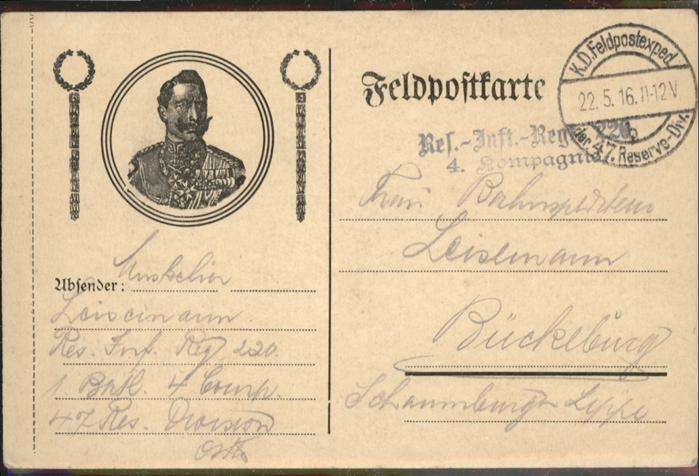 Feldpostkarte
K.D. Feldpostexped.
22.5.16. 11-12V
b
der 47. Reserve-Div.
Res.-Inft.-Regt. 220
4. Kompagnie
Frau
Leisemann
Bückeburg
Schaumburg Lippe
Absender: Musketier
Leisemann
Res. Inf. Reg 220.
1 Batl. 4 Comp.
47 Res. Division